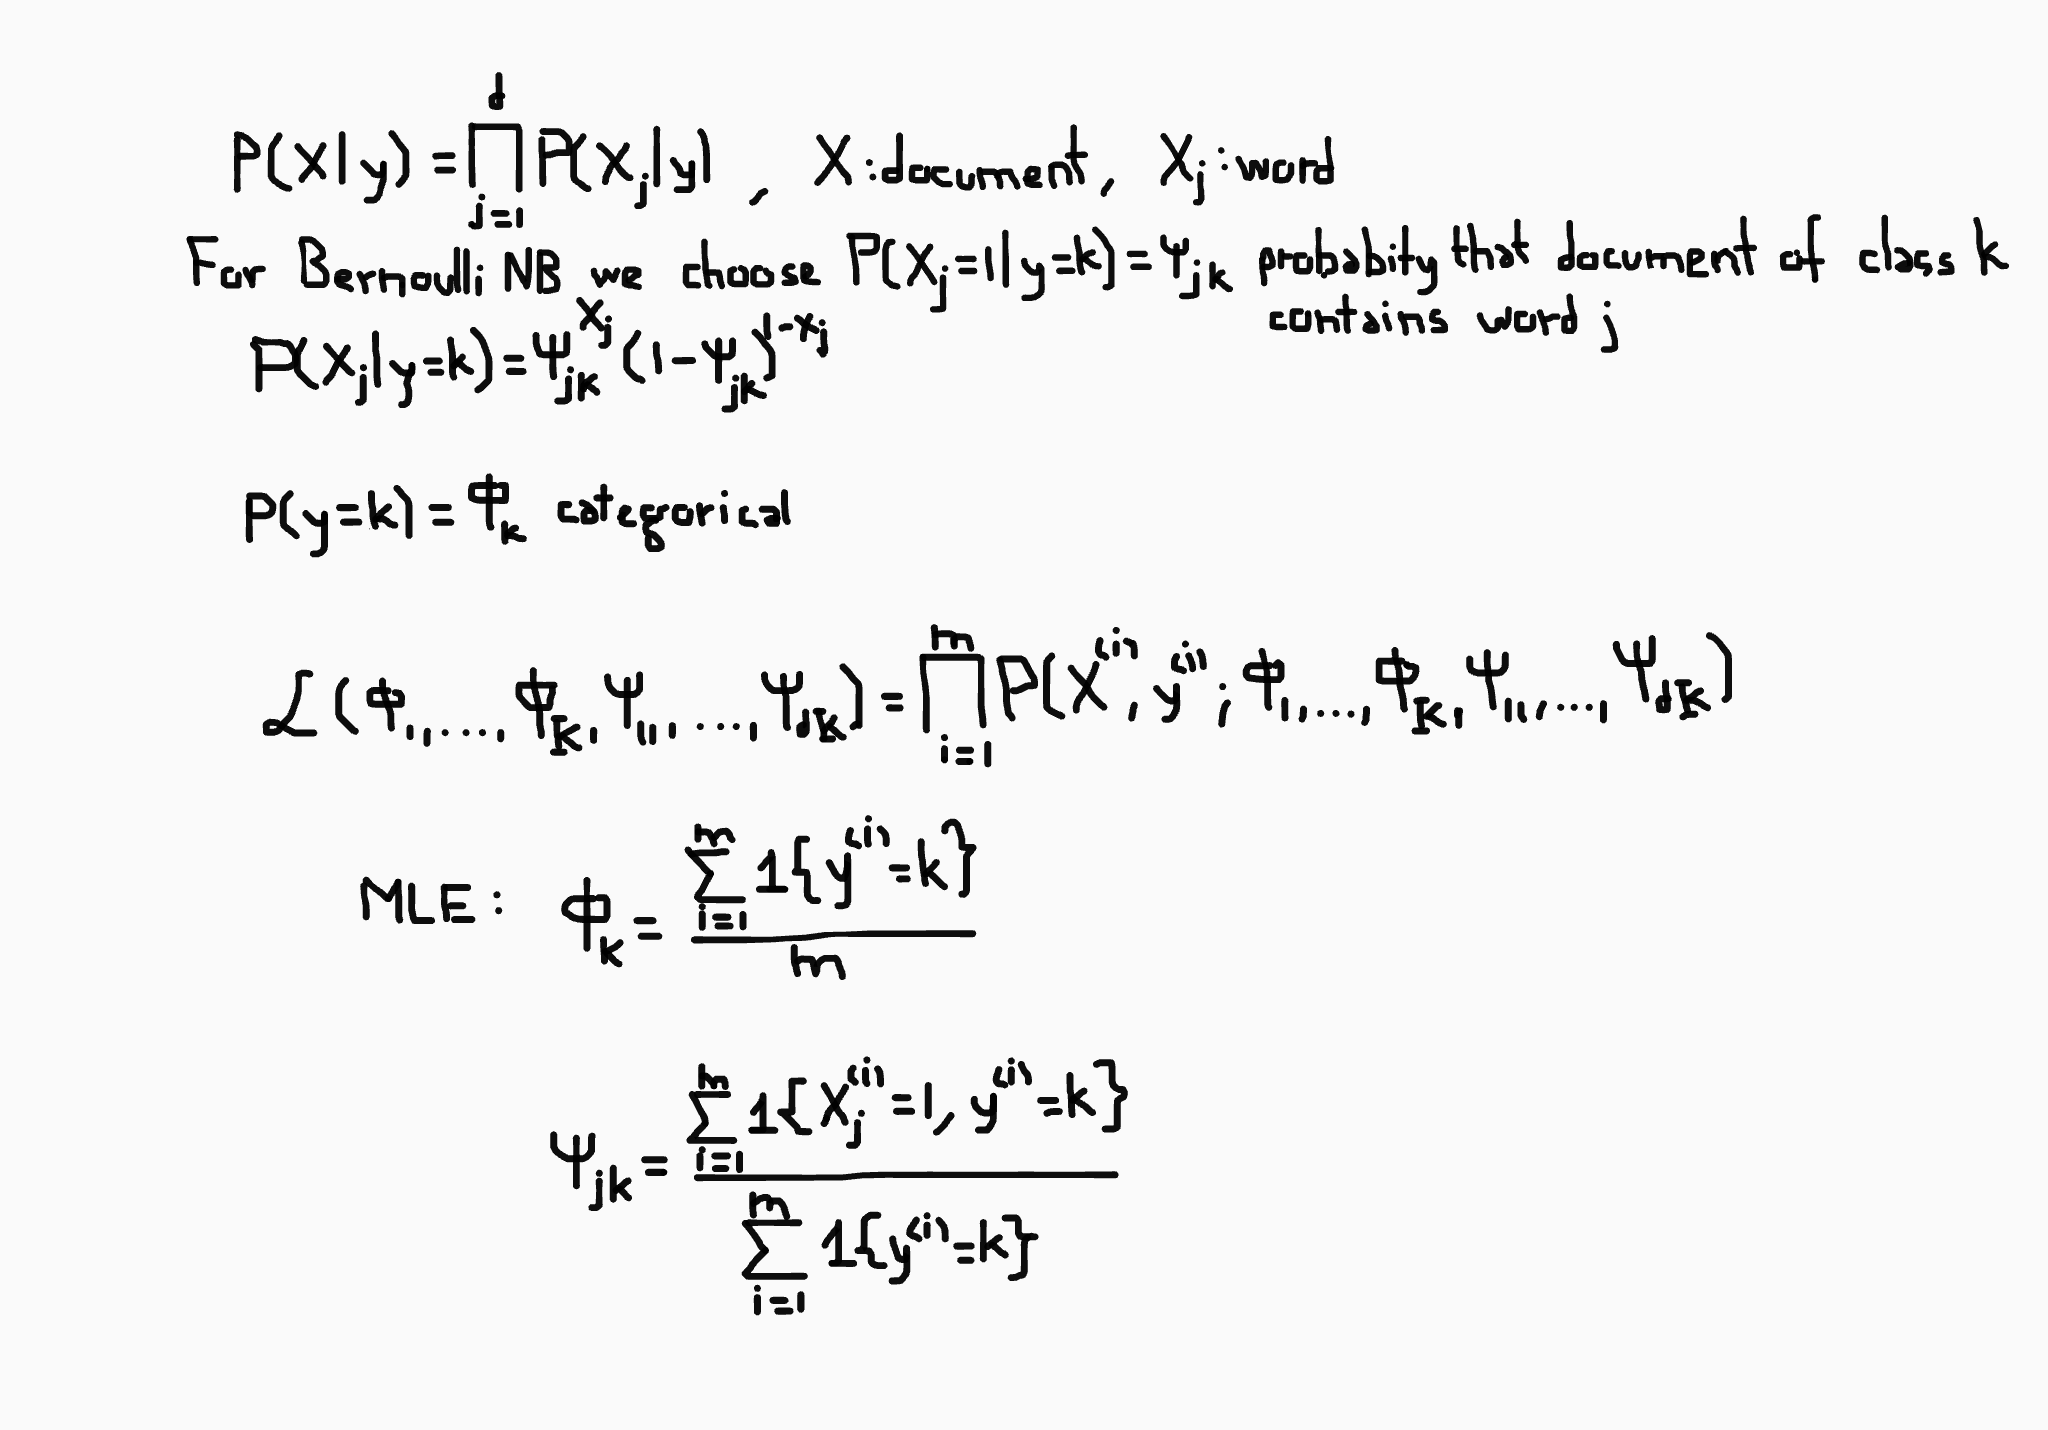 P(X|y) = ∏_{j=1}^{d} P(X_j|y) , X:document, X_j:word
For Bernoulli NB we choose P(X_j=1|y=k) = Ψ_{jk} probabity that document of class k
contains word j
P(X_j|y=k) = Ψ_{jk}^{X_j} (1-Ψ_{jk})^{1-X_j}
P(y=k) = Φ_k categorical
ℒ(Φ_1, ...., Φ_K, Ψ_{11}, ...., Ψ_{dK}) = ∏_{i=1}^{m} P(X^{(i)}, y^{(i)}; Φ_1, ..., Φ_K, Ψ_{11}, ..., Ψ_{dK})
MLE: Φ_k = \frac{∑_{i=1}^{m} 1{y^{(i)}=k}}{m}
Ψ_{jk} = \frac{∑_{i=1}^{m} 1{X_j^{(i)}=1, y^{(i)}=k}}{∑_{i=1}^{m} 1{y^{(i)}=k}}